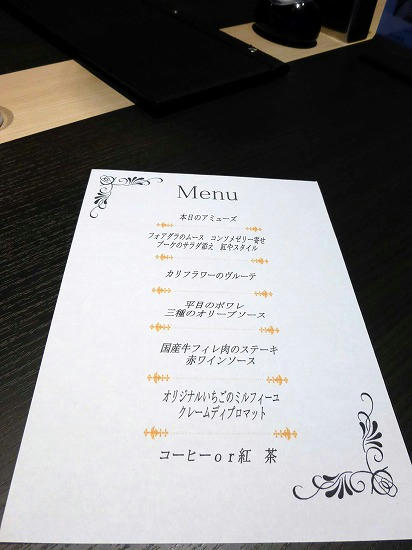 Menu
本日のアミューズ
フォアグラのムース　コンソメゼリー寄せ
ブーケのサラダ添え　紅やスタイル
カリフラワーのヴルーテ
平目のポワレ
三種のオリーブソース
国産牛フィレ肉のステーキ
赤ワインソース
オリジナルいちごのミルフィーユ
クレームディプロマット
コーヒーｏｒ紅　茶